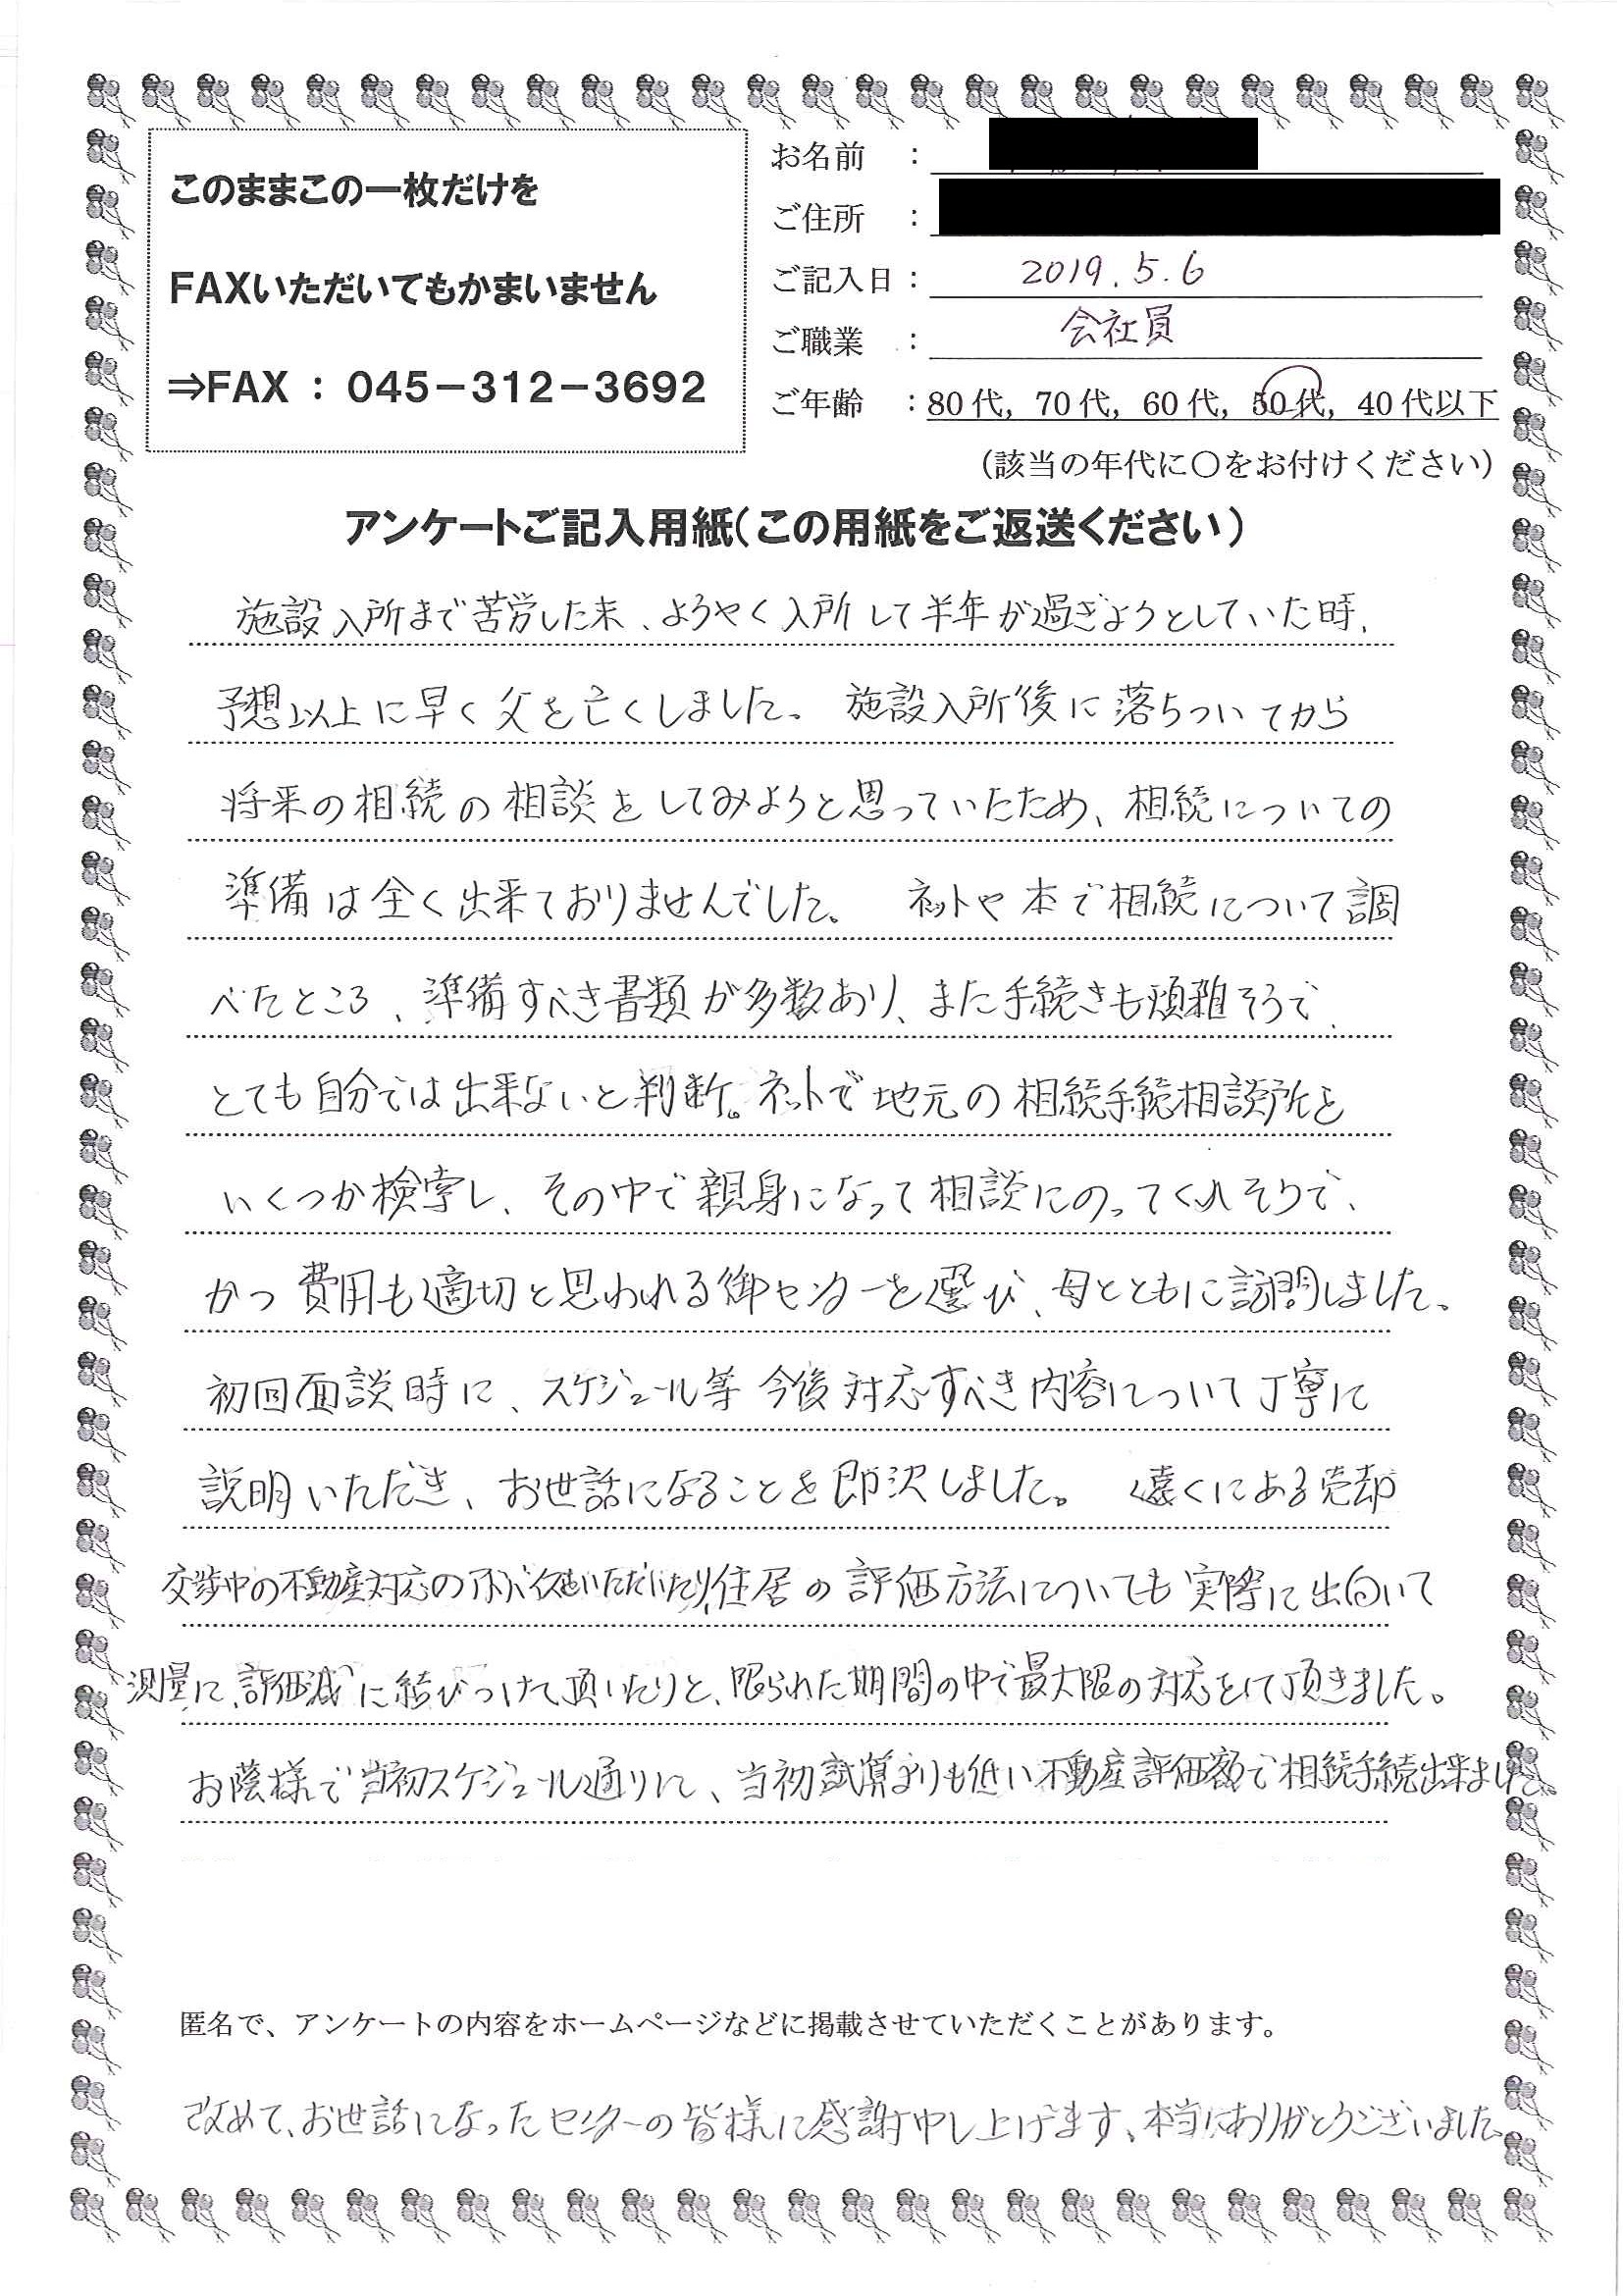 このままこの一枚だけを
FAXいただいてもかまいません
⇒FAX : 045－312－3692
お名前 :
ご住所 :
ご記入日 : 2019.5.6
ご職業 : 会社員
ご年齢 : 80代, 70代, 60代, 50代, 40代以下
(該当の年代に〇をお付けください)
アンケートご記入用紙(この用紙をご返送ください)
施設入所まで苦労した末、ようやく入所して半年が過ぎようとしていた時、
予想以上に早く父を亡くしました。 施設入所後に落ちついてから
将来の相続の相談をしてみようと思っていたため、相続についての
準備は全く出来ておりませんでした。 ネットや本で相続について調
べたところ、準備すべき書類が多数あり、また手続きも煩雑そうで、
とても自分では出来ないと判断。ネットで地元の相続手続相談所を
いくつか検索し、その中で親身になって相談にのってくれそうで、
かつ費用も適切と思われる御センターを選び、母とともに訪問しました。
初回面談時に、スケジュール等今後対応すべき内容について丁寧に
説明いただき、お世話になることを即決しました。 遠くにある売却
交渉中の不動産対応のアドバイスをいただいたり、住居の評価方法についても実際に出向いて
測量に、評価減に結びつけて頂いたりと、限られた期間の中で最大限の対応をして頂きました。
お蔭様で当初スケジュール通りに、当初試算よりも低い不動産評価額で相続手続出来ました。
匿名で、アンケートの内容をホームページなどに掲載させていただくことがあります。
改めて、お世話になったセンターの皆様に感謝申し上げます、本当にありがとうございました。